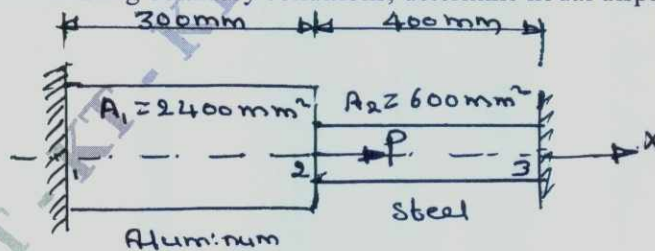 300mm 400mm
A₁=2400mm² A₂=600mm²
1 2 P 3 x
Steel
Aluminum